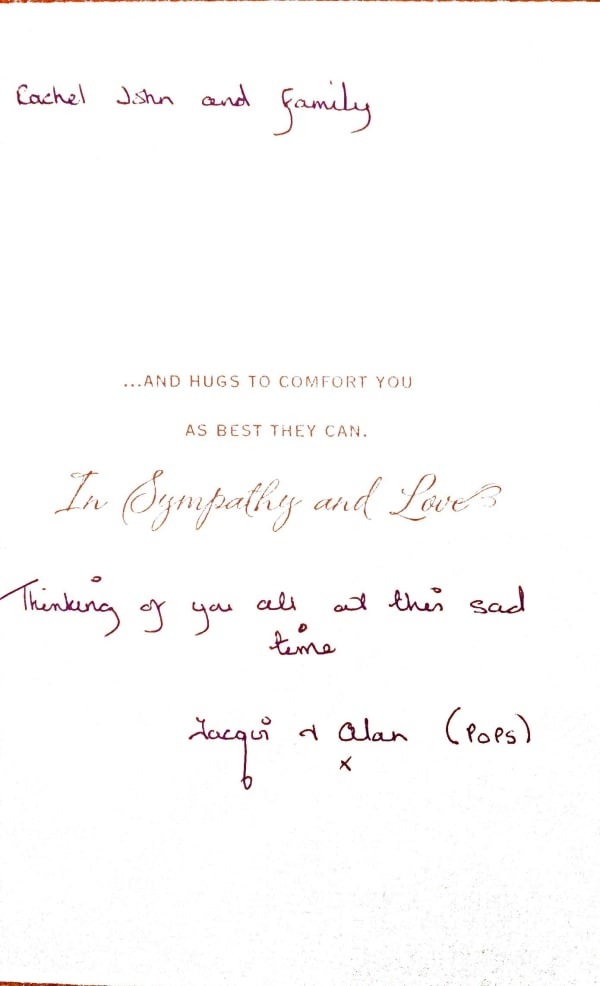 Rachel John and family
...AND HUGS TO COMFORT YOU
AS BEST THEY CAN.
In Sympathy and Love
Thinking of you all at this sad
time
Jacqui & Alan (POPS)
x